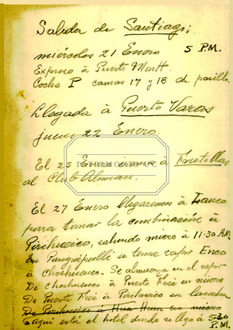 Salida de Santiago;
miércoles 21 Enero 5 P.M.
Expreso à Puerto Montt.
Coche P camas 17 y 18 de pasillo.
Llegada à Puerto Varas
jueves 22 Enero.
El 25 Enero vamos à Frutillar
al Club Aleman.
El 27 Enero llegaremos à
para tomar la combinación à
Pirihueico, saliendo micro à 11:30 AM.
de Panguipulli se toma vapor Enco
à Choshuenco. Se almuerza en el vapor
De Choshuenco à Puerto Fui en micro
De Puerto Fui à Pirihueico en lancha
aqui está el hotel donde se llega à 5:30
P.M.